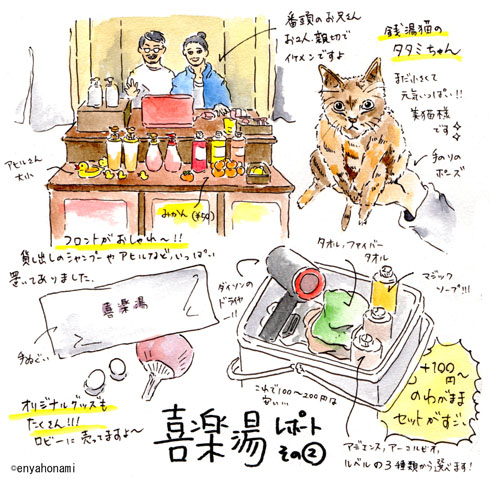 番頭のお兄さん
お2人、親切で
イケメンですよ
銭湯猫の
タタミちゃん
まだ小さくて
元気いっぱい!!
美猫様
です
手のりの
ポーズ
アヒルさん
大小
みかん(¥50)
フロントがおしゃれ〜!!
貸し出しのシャンプーやアヒルなど、いっぱい
置いてありました。
喜楽湯
手ぬぐい
オリジナルグッズも
たくさん!!!
ロビーに売ってますよ〜
タオル、ファイバー
タオル
ダイソンの
ドライヤー!!
マジック
ソープ!!!
これで100〜200円は
安い…
+100円〜
のわがまま
セットがすごい
アジエンス、アーユルビオ、
ルベルの3種類から選べます!
喜楽湯 レポート
その②
©enyahonami